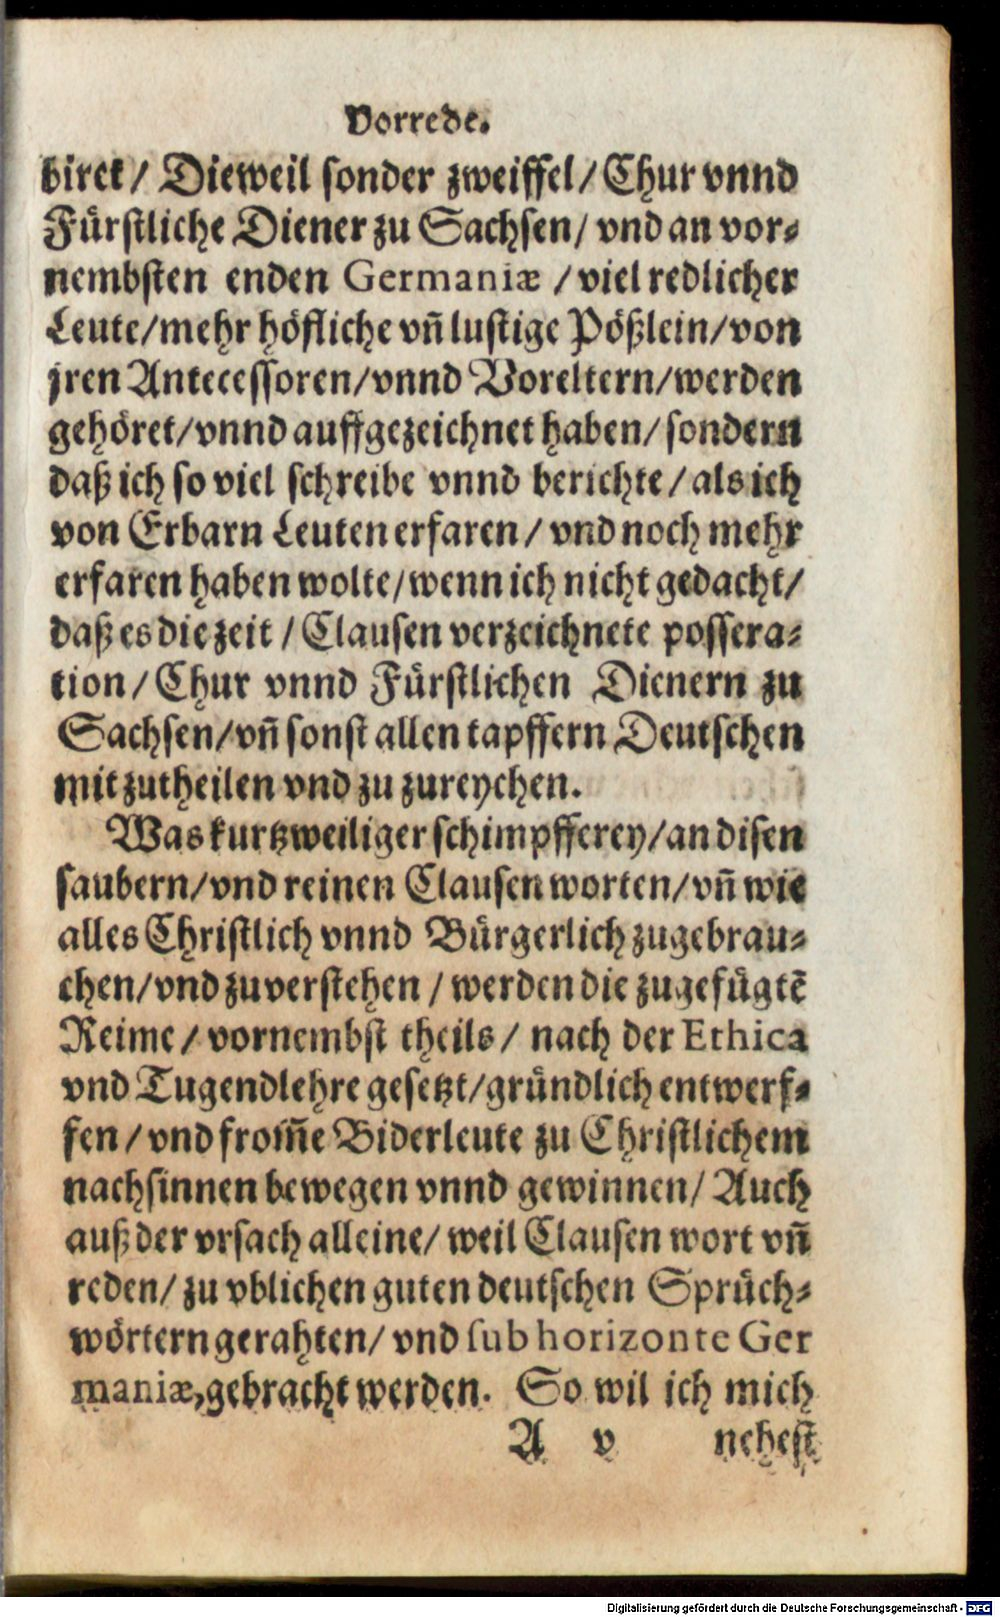 Vorrede.
biret / Dieweil sonder zweiffel / Chur vnnd
Fürstliche Diener zu Sachsen / vnd an vor-
nembsten enden Germaniæ / viel redlicher
Leute / mehr höfliche vñ lustige Pößlein / von
jren Antecessoren / vnnd Voreltern / werden
gehöret / vnnd auffgezeichnet haben / sondern
daß ich so viel schreibe vnnd berichte / als ich
von Erbarn Leuten erfaren / vnd noch mehr
erfaren haben wolte / wenn ich nicht gedacht /
daß es die zeit / Clausen verzeichnete possera-
tion / Chur vnnd Fürstlichen Dienern zu
Sachsen / vñ sonst allen tapffern Deutschen
mit zutheilen vnd zu zureychen.
Was kurtzweiliger schimpfferey / an disen
saubern / vnd reinen Clausen worten / vñ wie
alles Christlich vnnd Bürgerlich zugebrau-
chen / vnd zuverstehen / werden die zugefügtē
Reime / vornembst theils / nach der Ethica
vnd Tugendlehre gesetzt / gründlich entwerf-
fen / vnd from̄e Biderleute zu Christlichem
nachsinnen bewegen vnnd gewinnen / Auch
auß der vrsach alleine / weil Clausen wort vñ
reden / zu vblichen guten deutschen Sprüch-
wörtern gerahten / vnd sub horizonte Ger
maniæ, gebracht werden. So wil ich mich
A v nehest
Digitalisierung gefördert durch die Deutsche Forschungsgemeinschaft - DFG